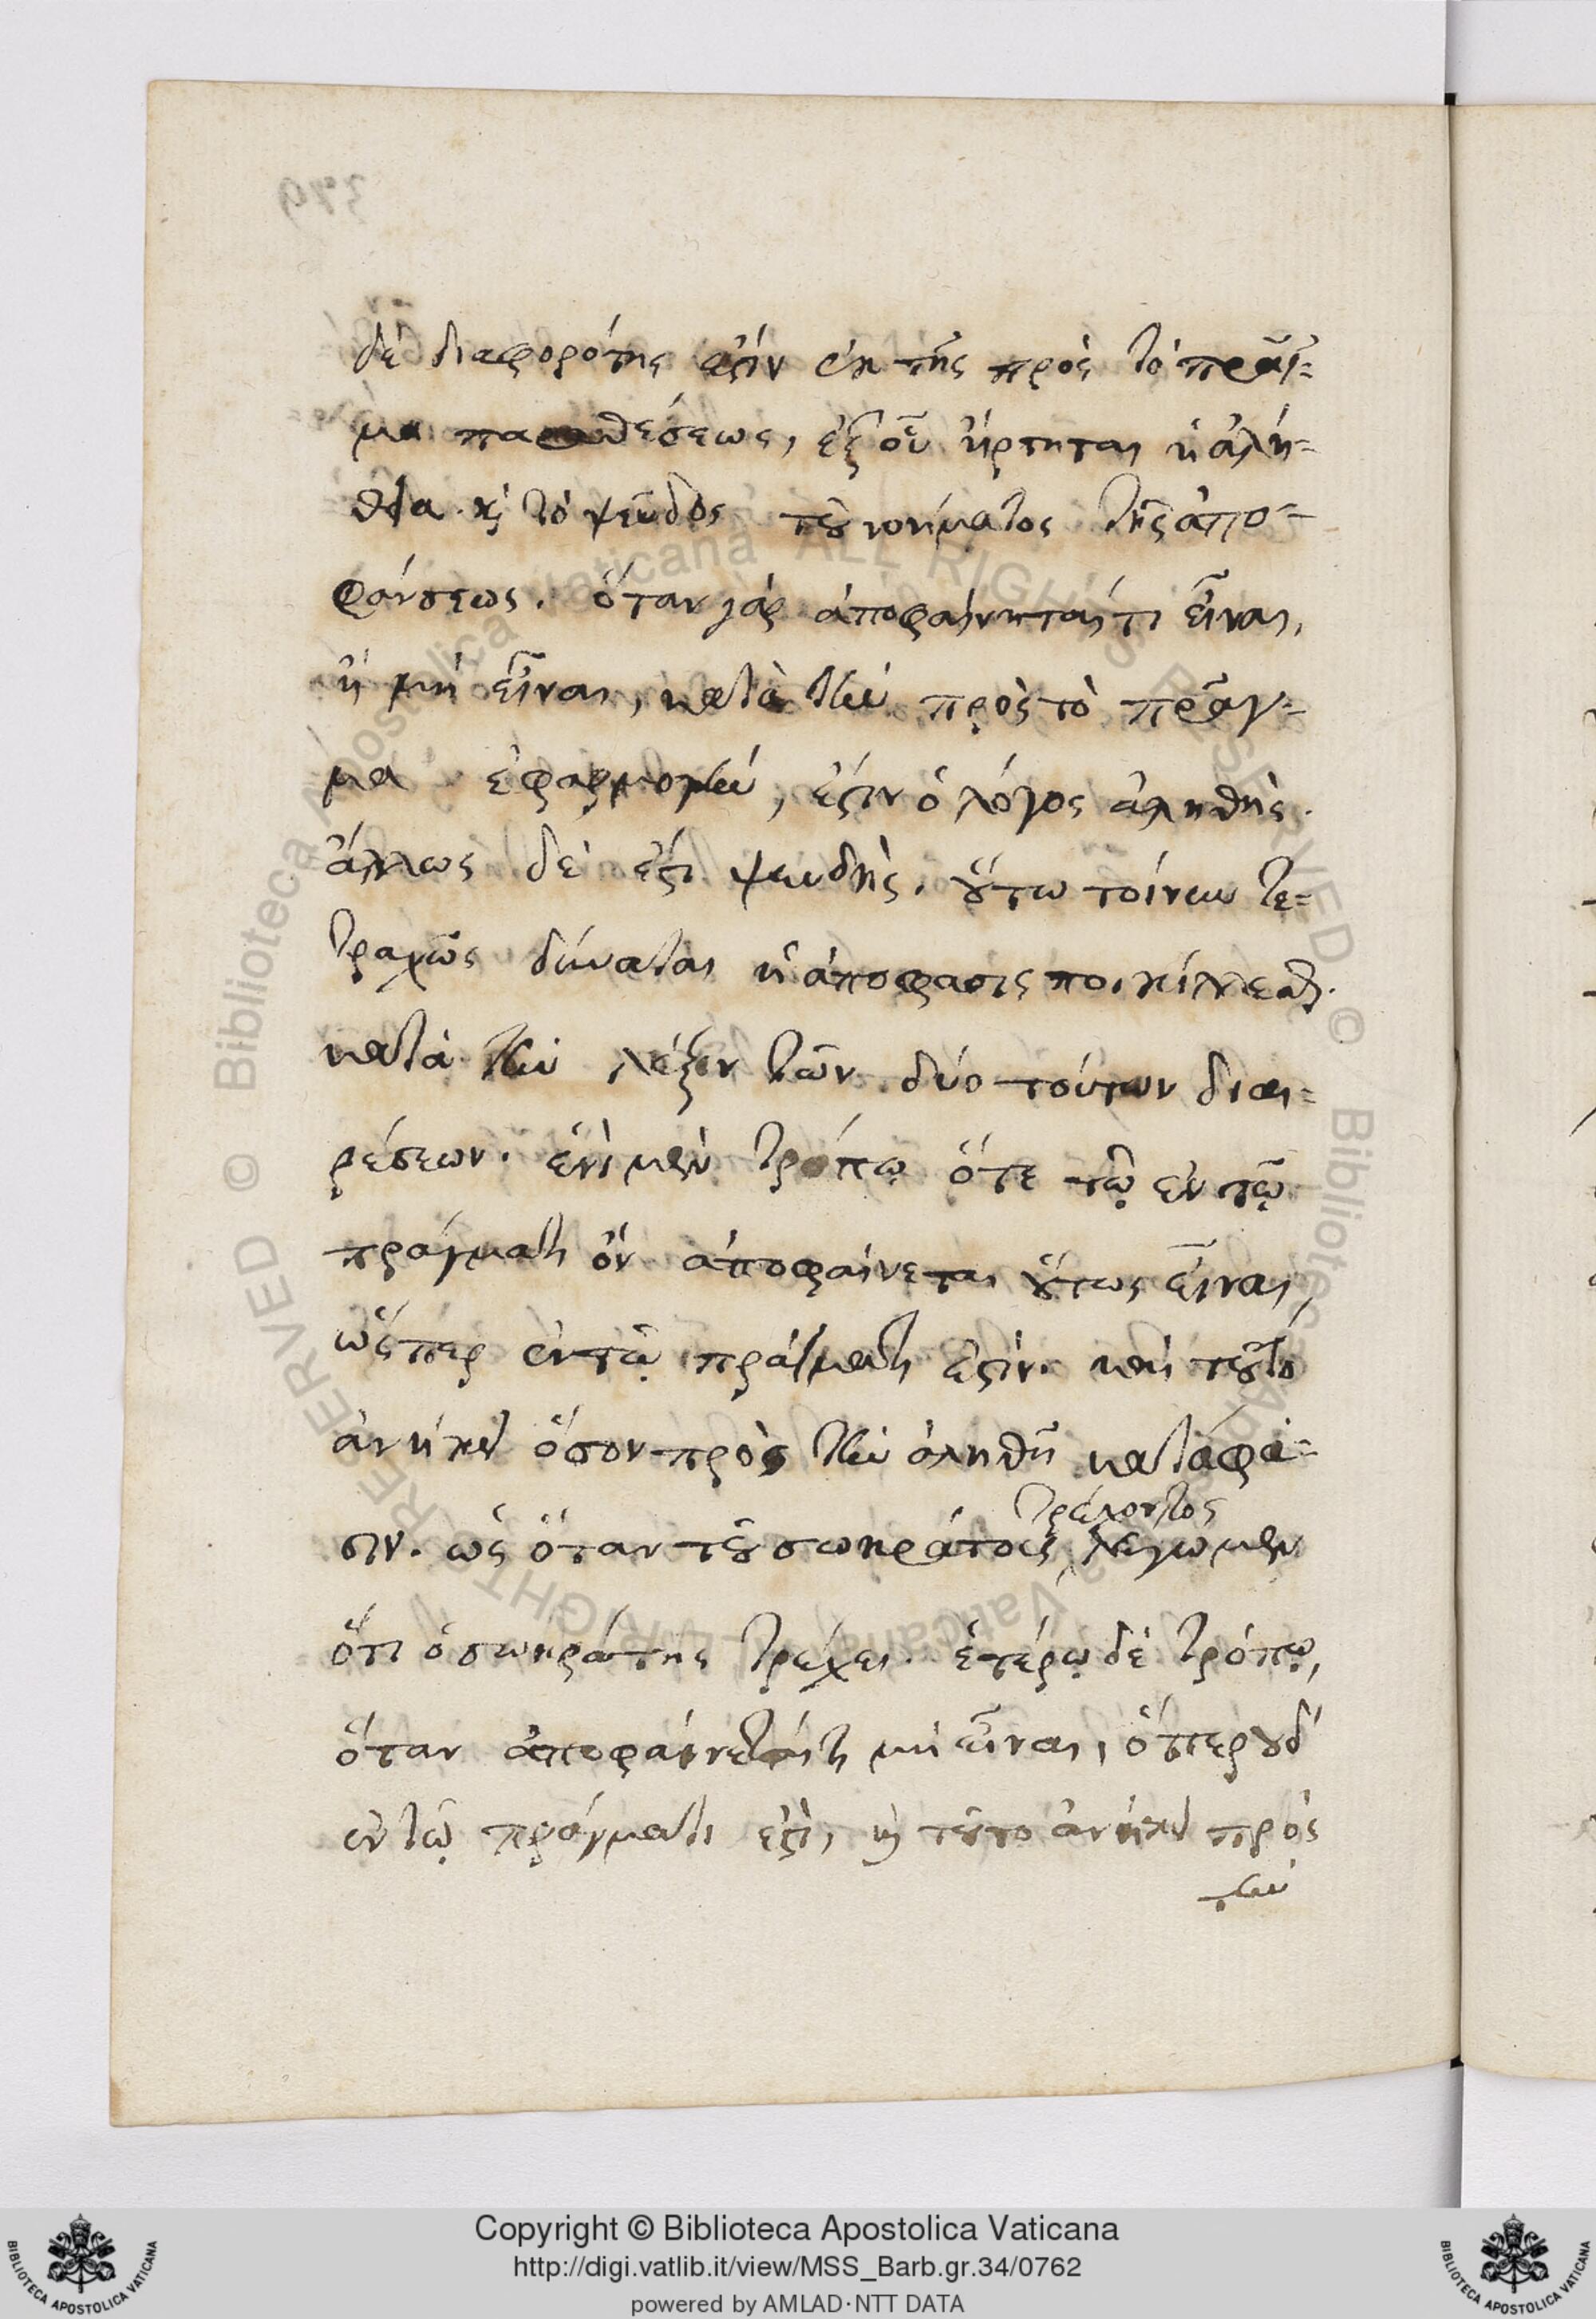 δὲ διαφορότης ἐστὶν ἐκ τῆς πρὸς τὸ πρᾶγ=
μα παραθέσεως, ἐξ οὗ ἤρτηται ἡ ἀλή=
θεια καὶ τὸ ψεῦδος τοῦ νοήματος τῆς ἀπο=
φάνσεως. ὅταν γὰρ ἀποφαίνηταί τι εἶναι,
ἢ μὴ εἶναι, κατὰ τὴν πρὸς τὸ πρᾶγ=
μα ἐφαρμογὴν, ἐστιν ὁ λόγος ἀληθής.
ἄλλως δὲ ἐστὶ ψευδὴς. οὕτω τοίνυν τε=
τραχῶς δύναται ἡ ἀπόφασις ποικίλλεσθαι.
κατὰ τὴν λέξιν τῶν δύο τούτων διαι=
ρέσεων. ἑνὶ μὲν τρόπῳ ὅτε τῷ ἐν τῷ
πράγματι ὂν ἀποφαίνεται οὕτως εἶναι,
ὥσπερ ἐν τῷ πράγματι ἐστίν. καὶ τοῦτο
ἀνήκει ὅσον πρὸς τὴν ἀληθῆ κατάφα=
σιν. ὡς ὅταν τοῦ σωκράτους τρέχοντος λέγωμεν
ὅτι ὁ σωκράτης τρέχει. ἑτέρῳ δὲ τρόπῳ,
ὅταν ἀποφαίνεταί τι μὴ εἶναι, ὅπερ οὐδ'
ἐν τῷ πράγματι ἐστὶ, καὶ τοῦτο ἀνήκει πρὸς
τὴν
379
Copyright © Biblioteca Apostolica Vaticana
http://digi.vatlib.it/view/MSS_Barb.gr.34/0762
powered by AMLAD·NTT DATA